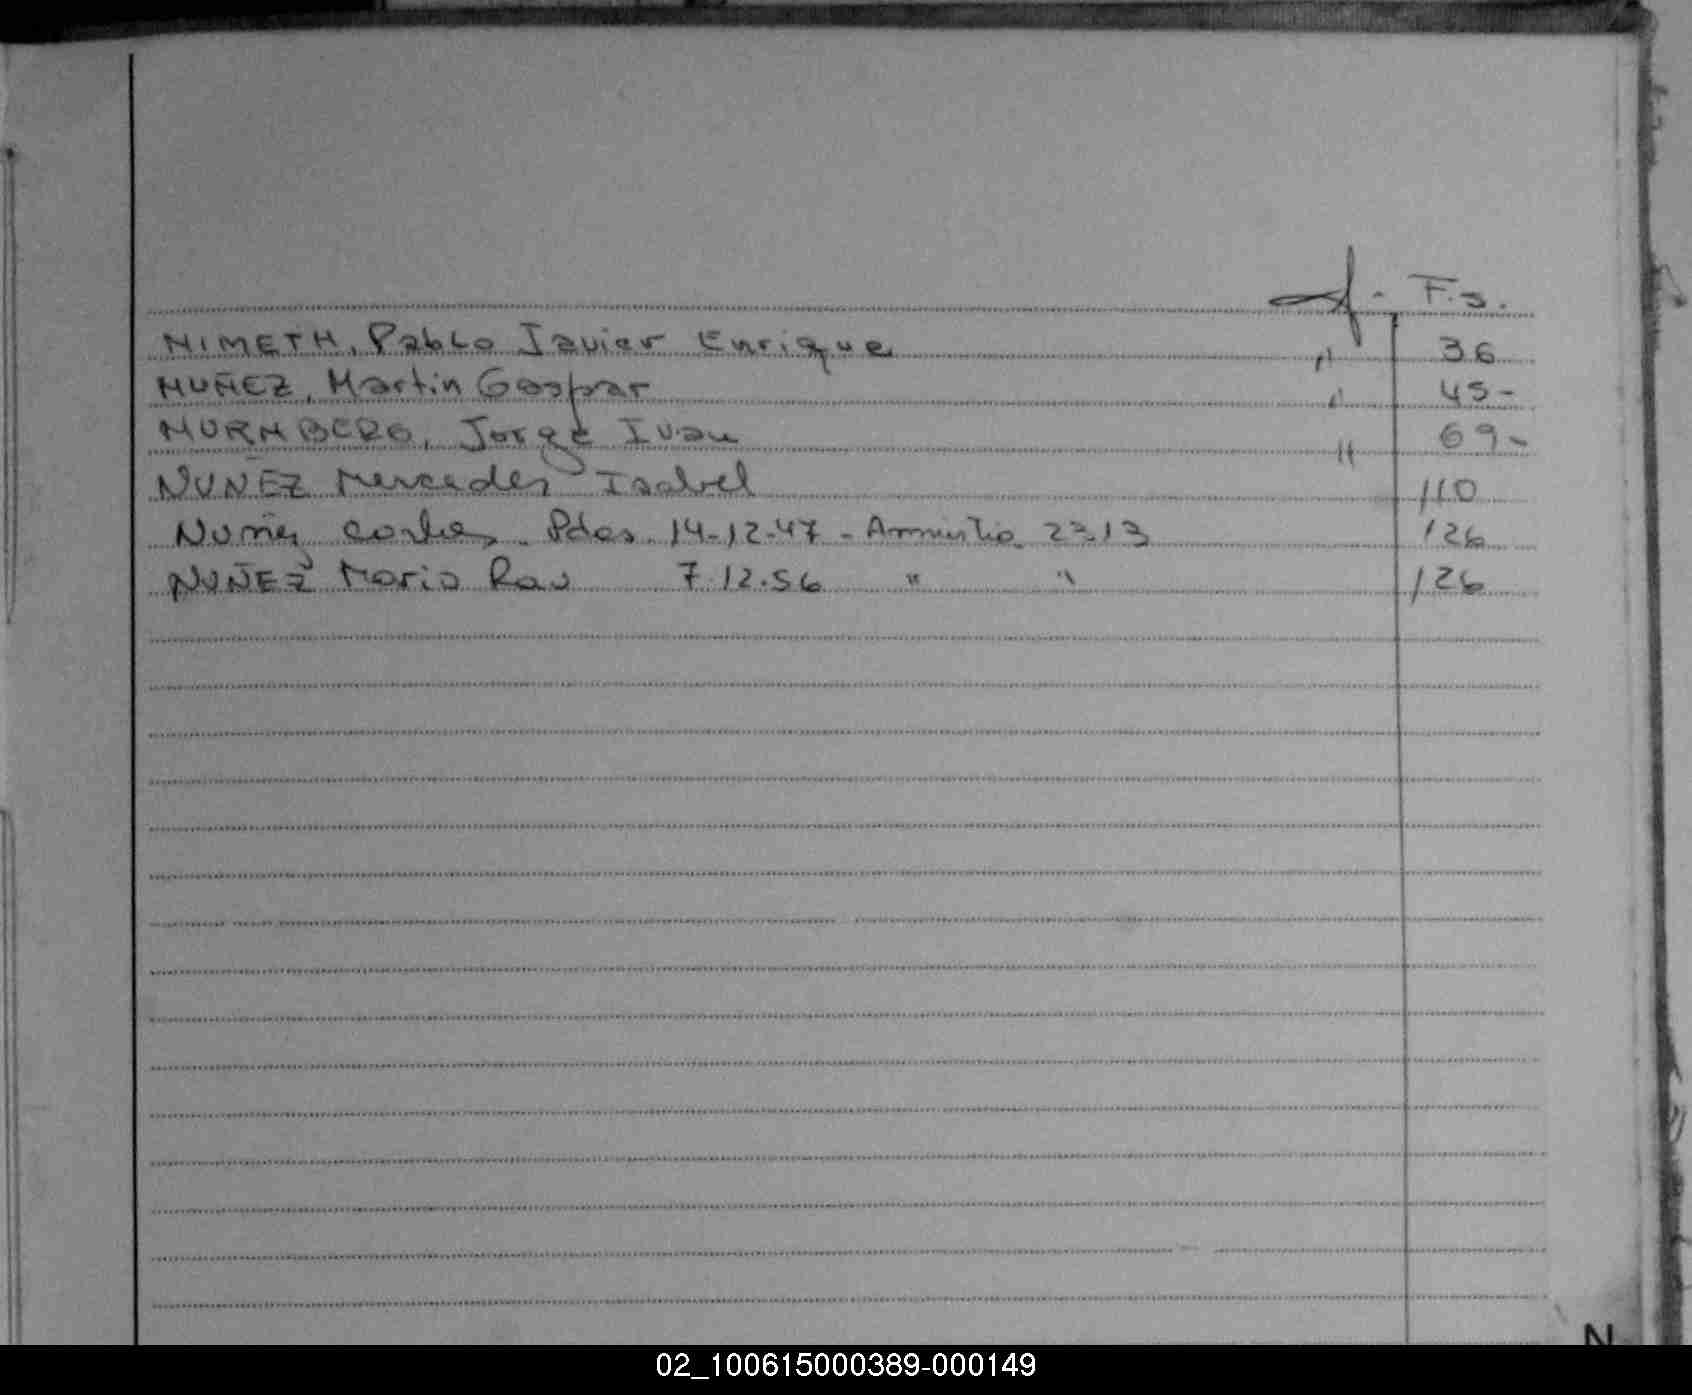 F.s.
NIMETH, Pablo Javier Enrique " 36
NUÑEZ, Martin Gaspar " 45-
NURNBERG, Jorge Ivan " 69-
NUÑEZ Mercedes Isabel 110
Nuñez Pdas. 14-12-47 - Amnistia 23.13 126
NUÑEZ Mario Rau 7.12.56 " " 126
N
02_100615000389-000149